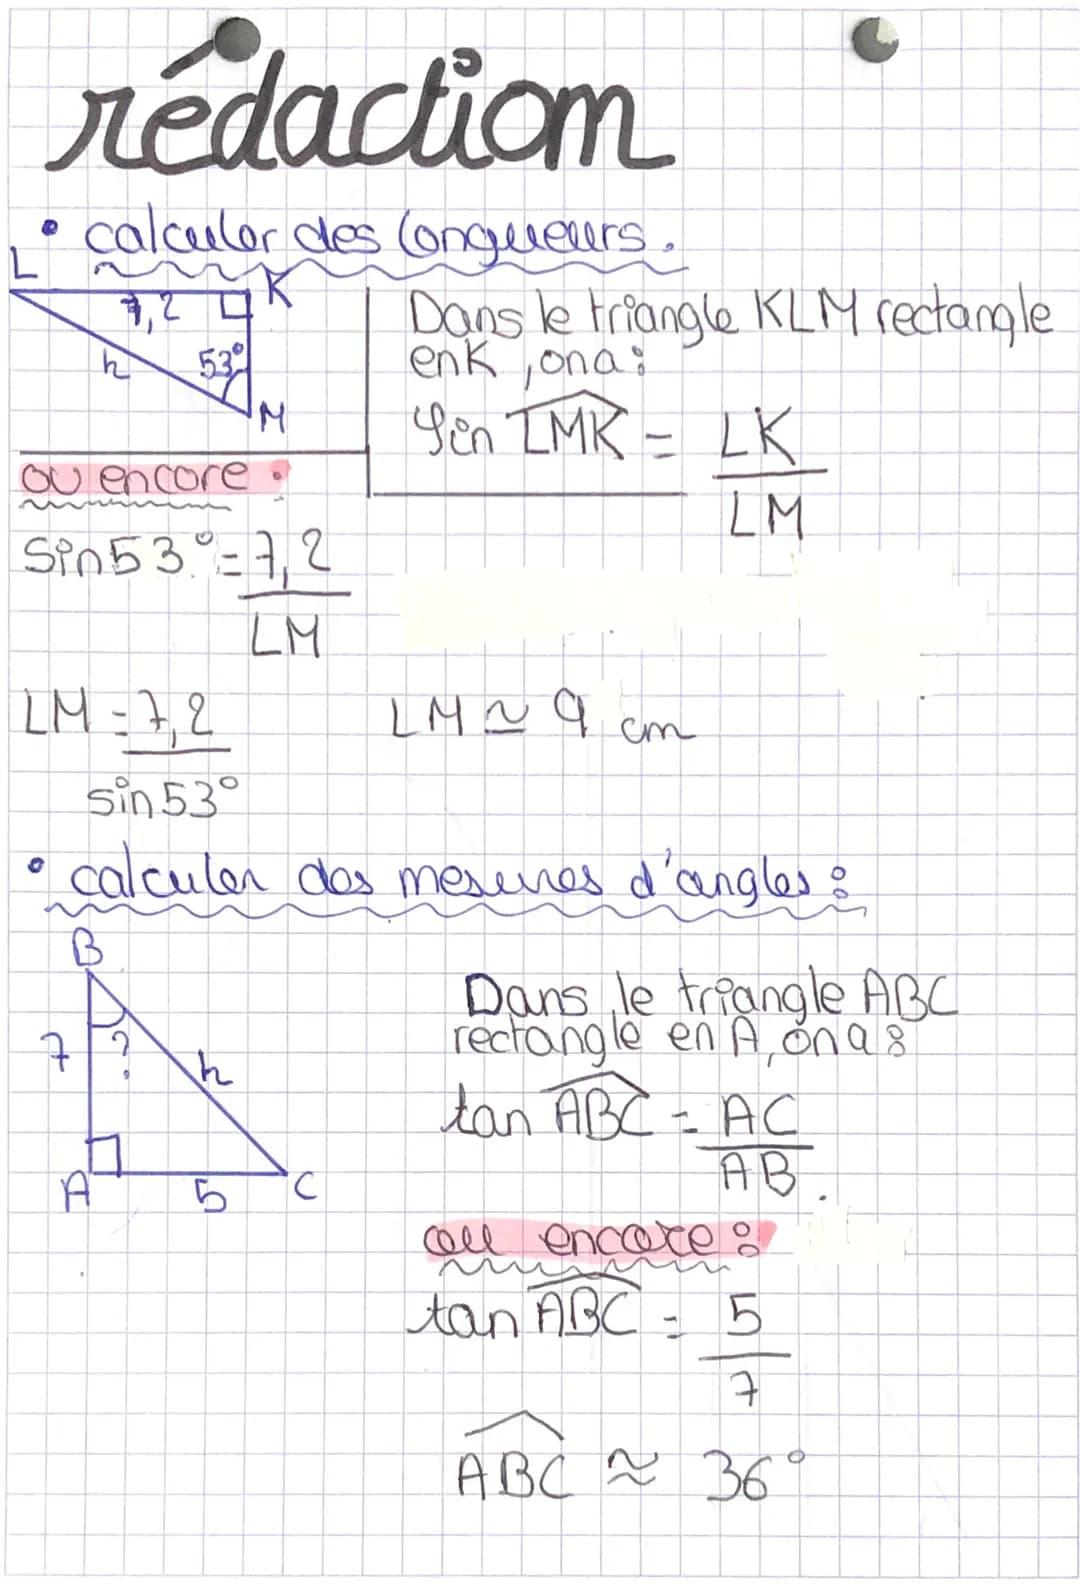 rédaction
• calculer des longueurs.
L
K
7,2
h
53°
M
Dans le triangle KLM rectangle
en K, on a :
Sin LMK = LK
LM
ou encore :
Sin 53° = 7,2
LM
LM = 7,2
sin 53°
LM ≃ 9 cm
• calculer des mesures d'angles :
B
7
?
h
A
5
C
Dans le triangle ABC
rectangle en A, on a :
tan ABC = AC
AB.
ou encore :
tan ABC = 5
7
ABC ≈ 36°